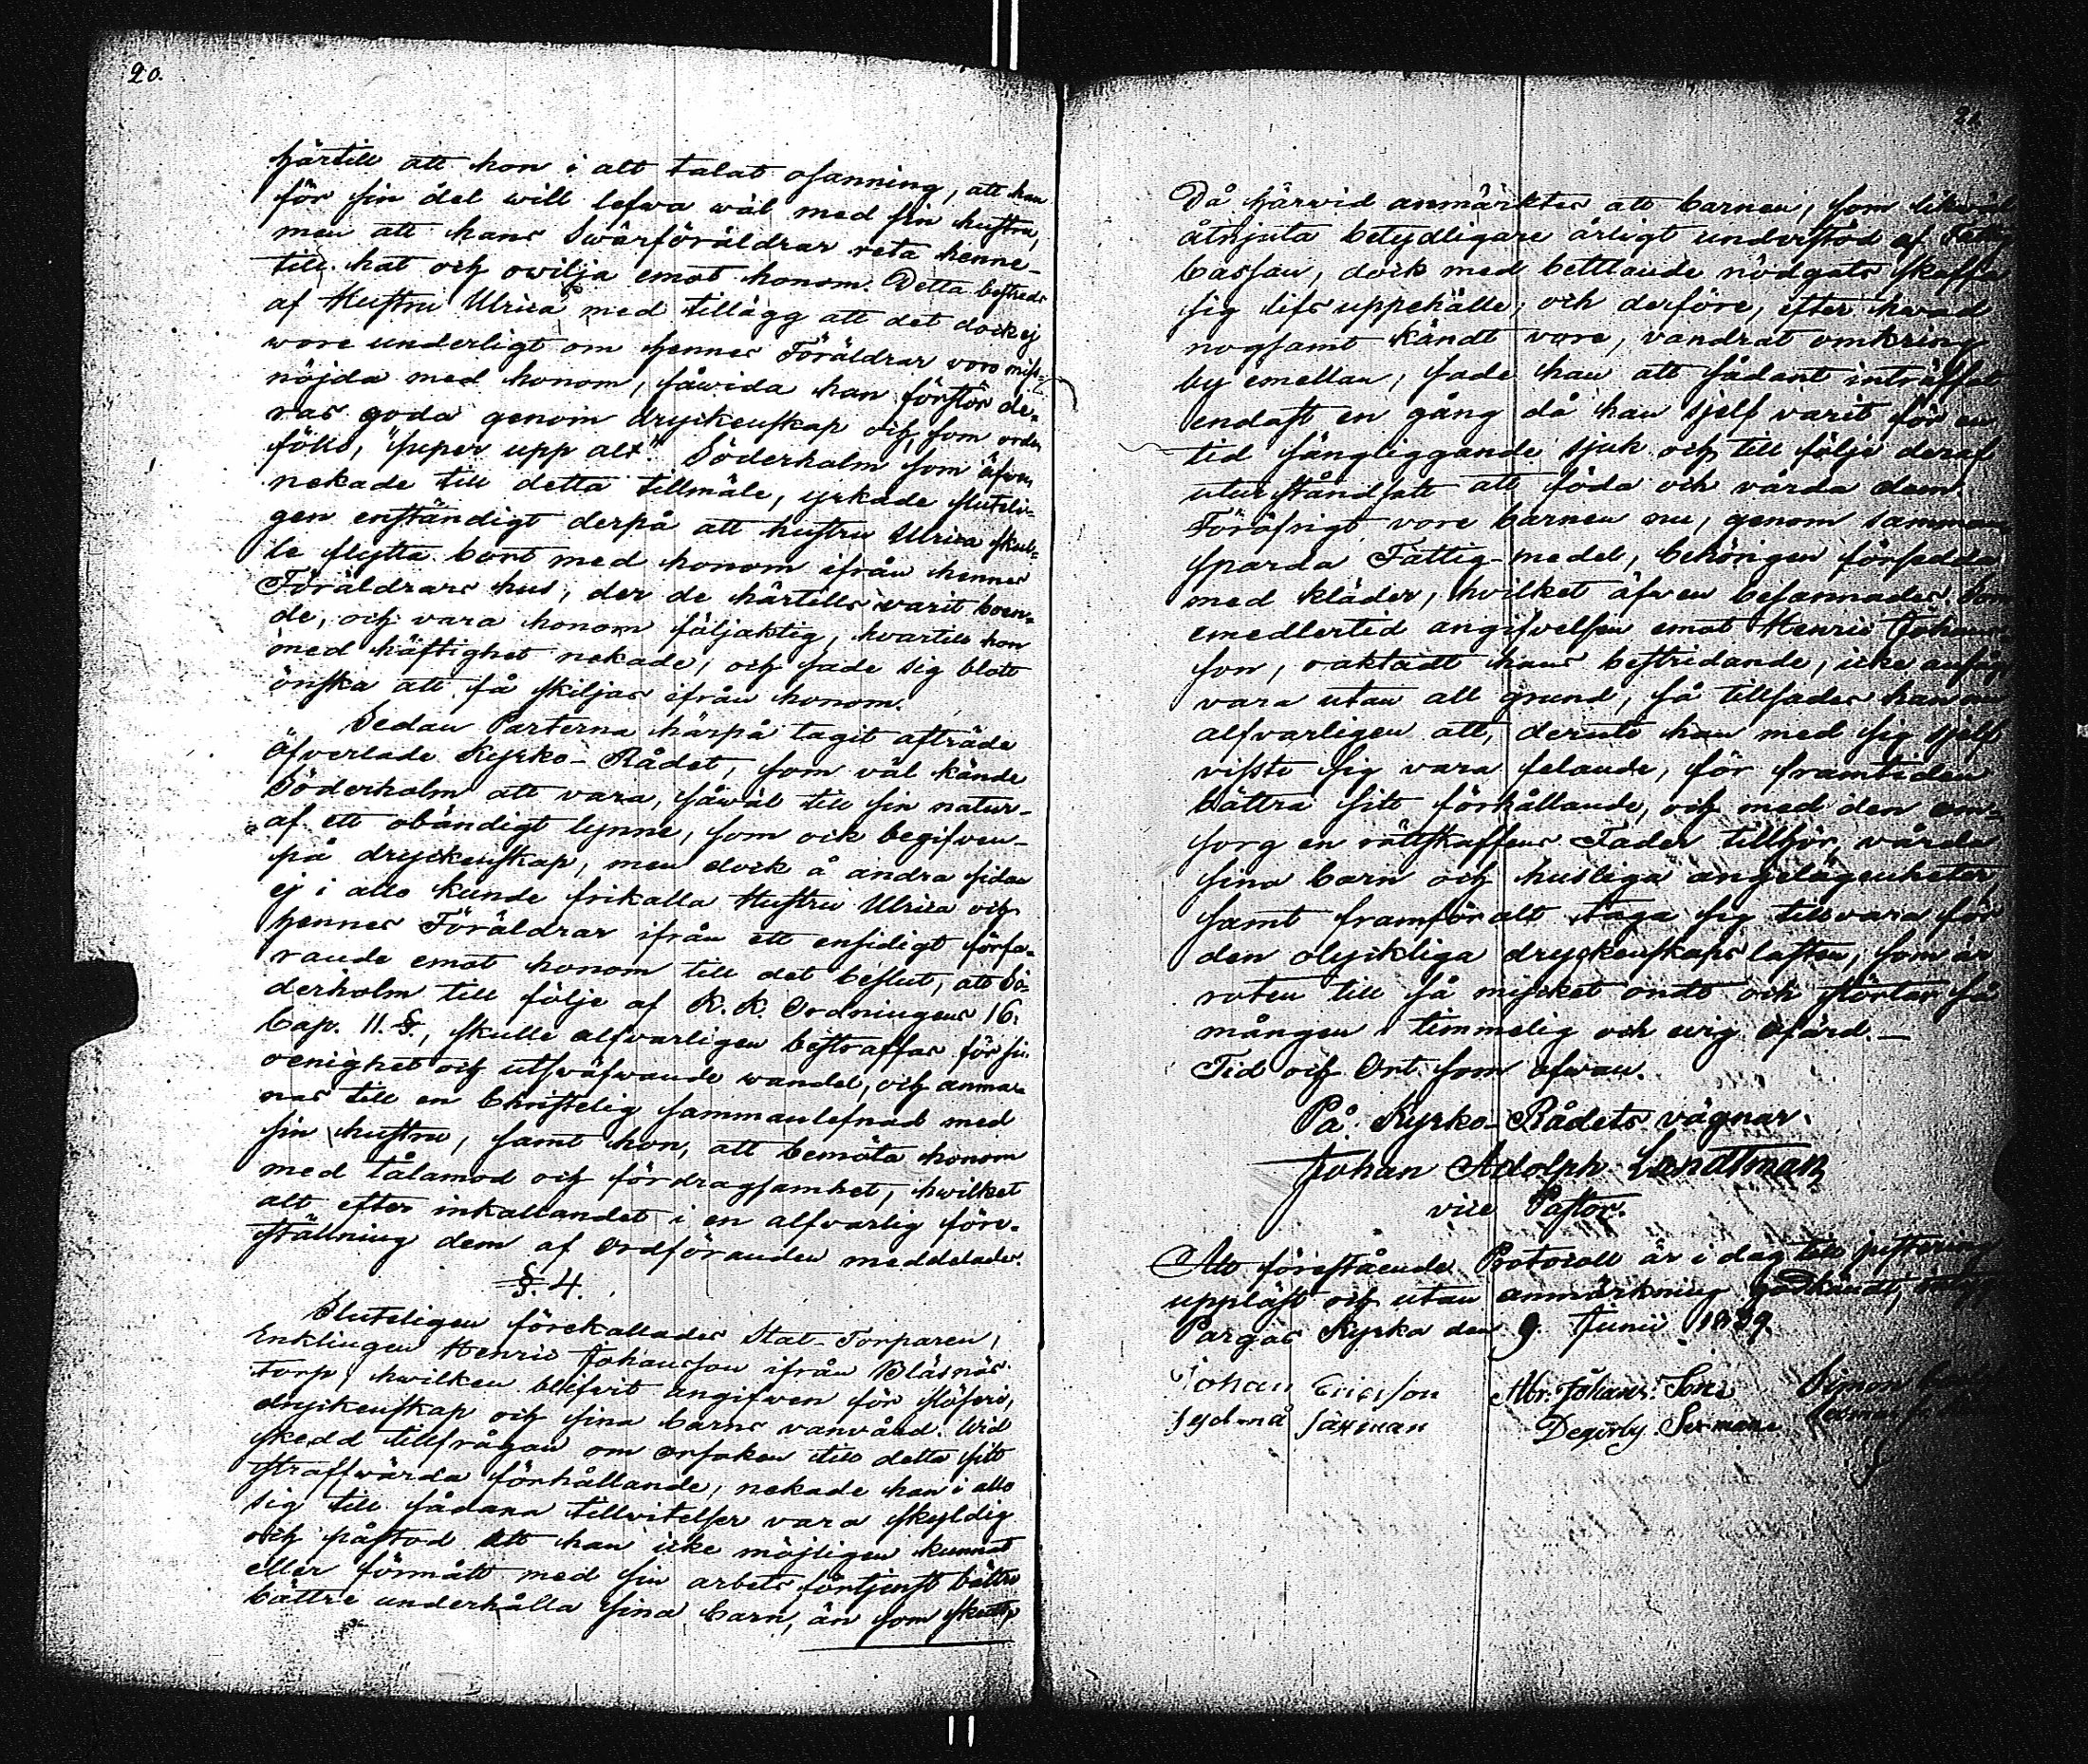 20.
härtill att hon i alt talat osanning, att han
för sin del will lefwa wäl med sin hustru,
men att hans Swärföräldrar reta henne
till hat och owilja emot honom. Detta bestreds
af Hustru Ulrica med tillägg att det dock ej
wore underligt om hennes Föräldrar voro miss-
nöjda med honom, såwida han förstör de-
ras goda genom dryckenskap och, som orden
föllo, "super upp alt". Söderholm som äfwen
nekade till detta tillmäle, yrkade sluteli-
gen enständigt derpå att hustru Ulrica skul-
le flytta bort med honom ifrån hennes
Föräldrars hus, der de härtills varit boen-
de, och vara honom följaktig, hvartill hon
med häftighet nekade, och sade sig blott
önska att få skiljas ifrån honom.
Sedan Parterna härpå tagit afträde
öfverlade Kyrko-Rådet, som väl kände
Söderholm att vara, såwäl till sin natur
af ett obändigt lynne, som ock begifven
på dryckenskap, men dock å andra sidan
ej i allo kunde frikalla Hustru Ulrica och
hennes Föräldrar ifrån ett ensidigt förfa-
rande emot honom till det beslut, att Sö-
derholm till följe af K. K. Ordningens 16.
Cap. 11. §., skulle alfvarligen bestraffas för sin
oenighet och utsväfwande wandel, och anma-
nas till en Christelig sammanlefnad med
sin hustru, samt hon, att bemöta honom
med tålamod och fördragsamhet, hwilket
alt efter inkallandet i en alfvarlig före-
ställning dem af Ordföranden meddelades.
§. 4.
Sluteligen förekallades Stat-Torparen,
Enklingen Henric Johansson ifrån Bläsnäs
torp, hwilken blifvit angifven för slöseri,
dryckenskap och sina barns vanvård. Wid
skedd tillfrågan om orsaken till detta sitt
straffwärda förhållande, nekade han i allo
sig till sådana tillvitelser vara skyldig
och påstod att han icke möjligen kunnat
eller förmått med sin arbets förtjenst bättre
bättre underhålla sina barn, än som skedt,
Då härvid anmärktes att barnen, som likwäl
åtnjuta betydligare årligt understöd af
cassan, dock med bettlande nödgats skaffa
sig lifsuppehälle, och derföre, efter hwad
nogsamt kändt vore, vandrat omkring
by emellan, sade han att sådant inträffat
endast en gång då han sjelf varit för en
tid sängliggande sjuk och till följe deraf
utur ståndsatt att föda och vårda dem.
Föröfrigt vore barnen nu, genom samman
sparda Fattig-medel, behörigen försedda
med kläder, hvilket äfwen besannades. Som
emedlertid angifvelsen emot Henric Johans-
son, oaktadt hans bestridande, icke ansågs
vara utan all grund, så tillsades han nu
alfvarligen att, deruti han med sig sjelf
visste sig vara felande, för framtiden
bättra sitt förhållande, och med den om-
sorg en rättskaffens Fader tillhör, vårda
sina barn och husliga angelägenheter,
samt framför alt taga sig till vara för
den olyckliga dryckenskaps lasten, som är
roten till så mycket ondt och störtar så
mången i timmelig och evig ofärd.
Tid och Ort som ofwan.
På Kyrko-Rådets vägnar.
Johan Adolph Sandtman
vice Pastor.
Att förestående Protocoll är i dag till justering
uppläst och utan anmärkning godkändt,
Pargas Kyrka den 9 Junii 1839.
Johan Ericsson Abr. Johans Son Simon
Sexman Degerby Sexman